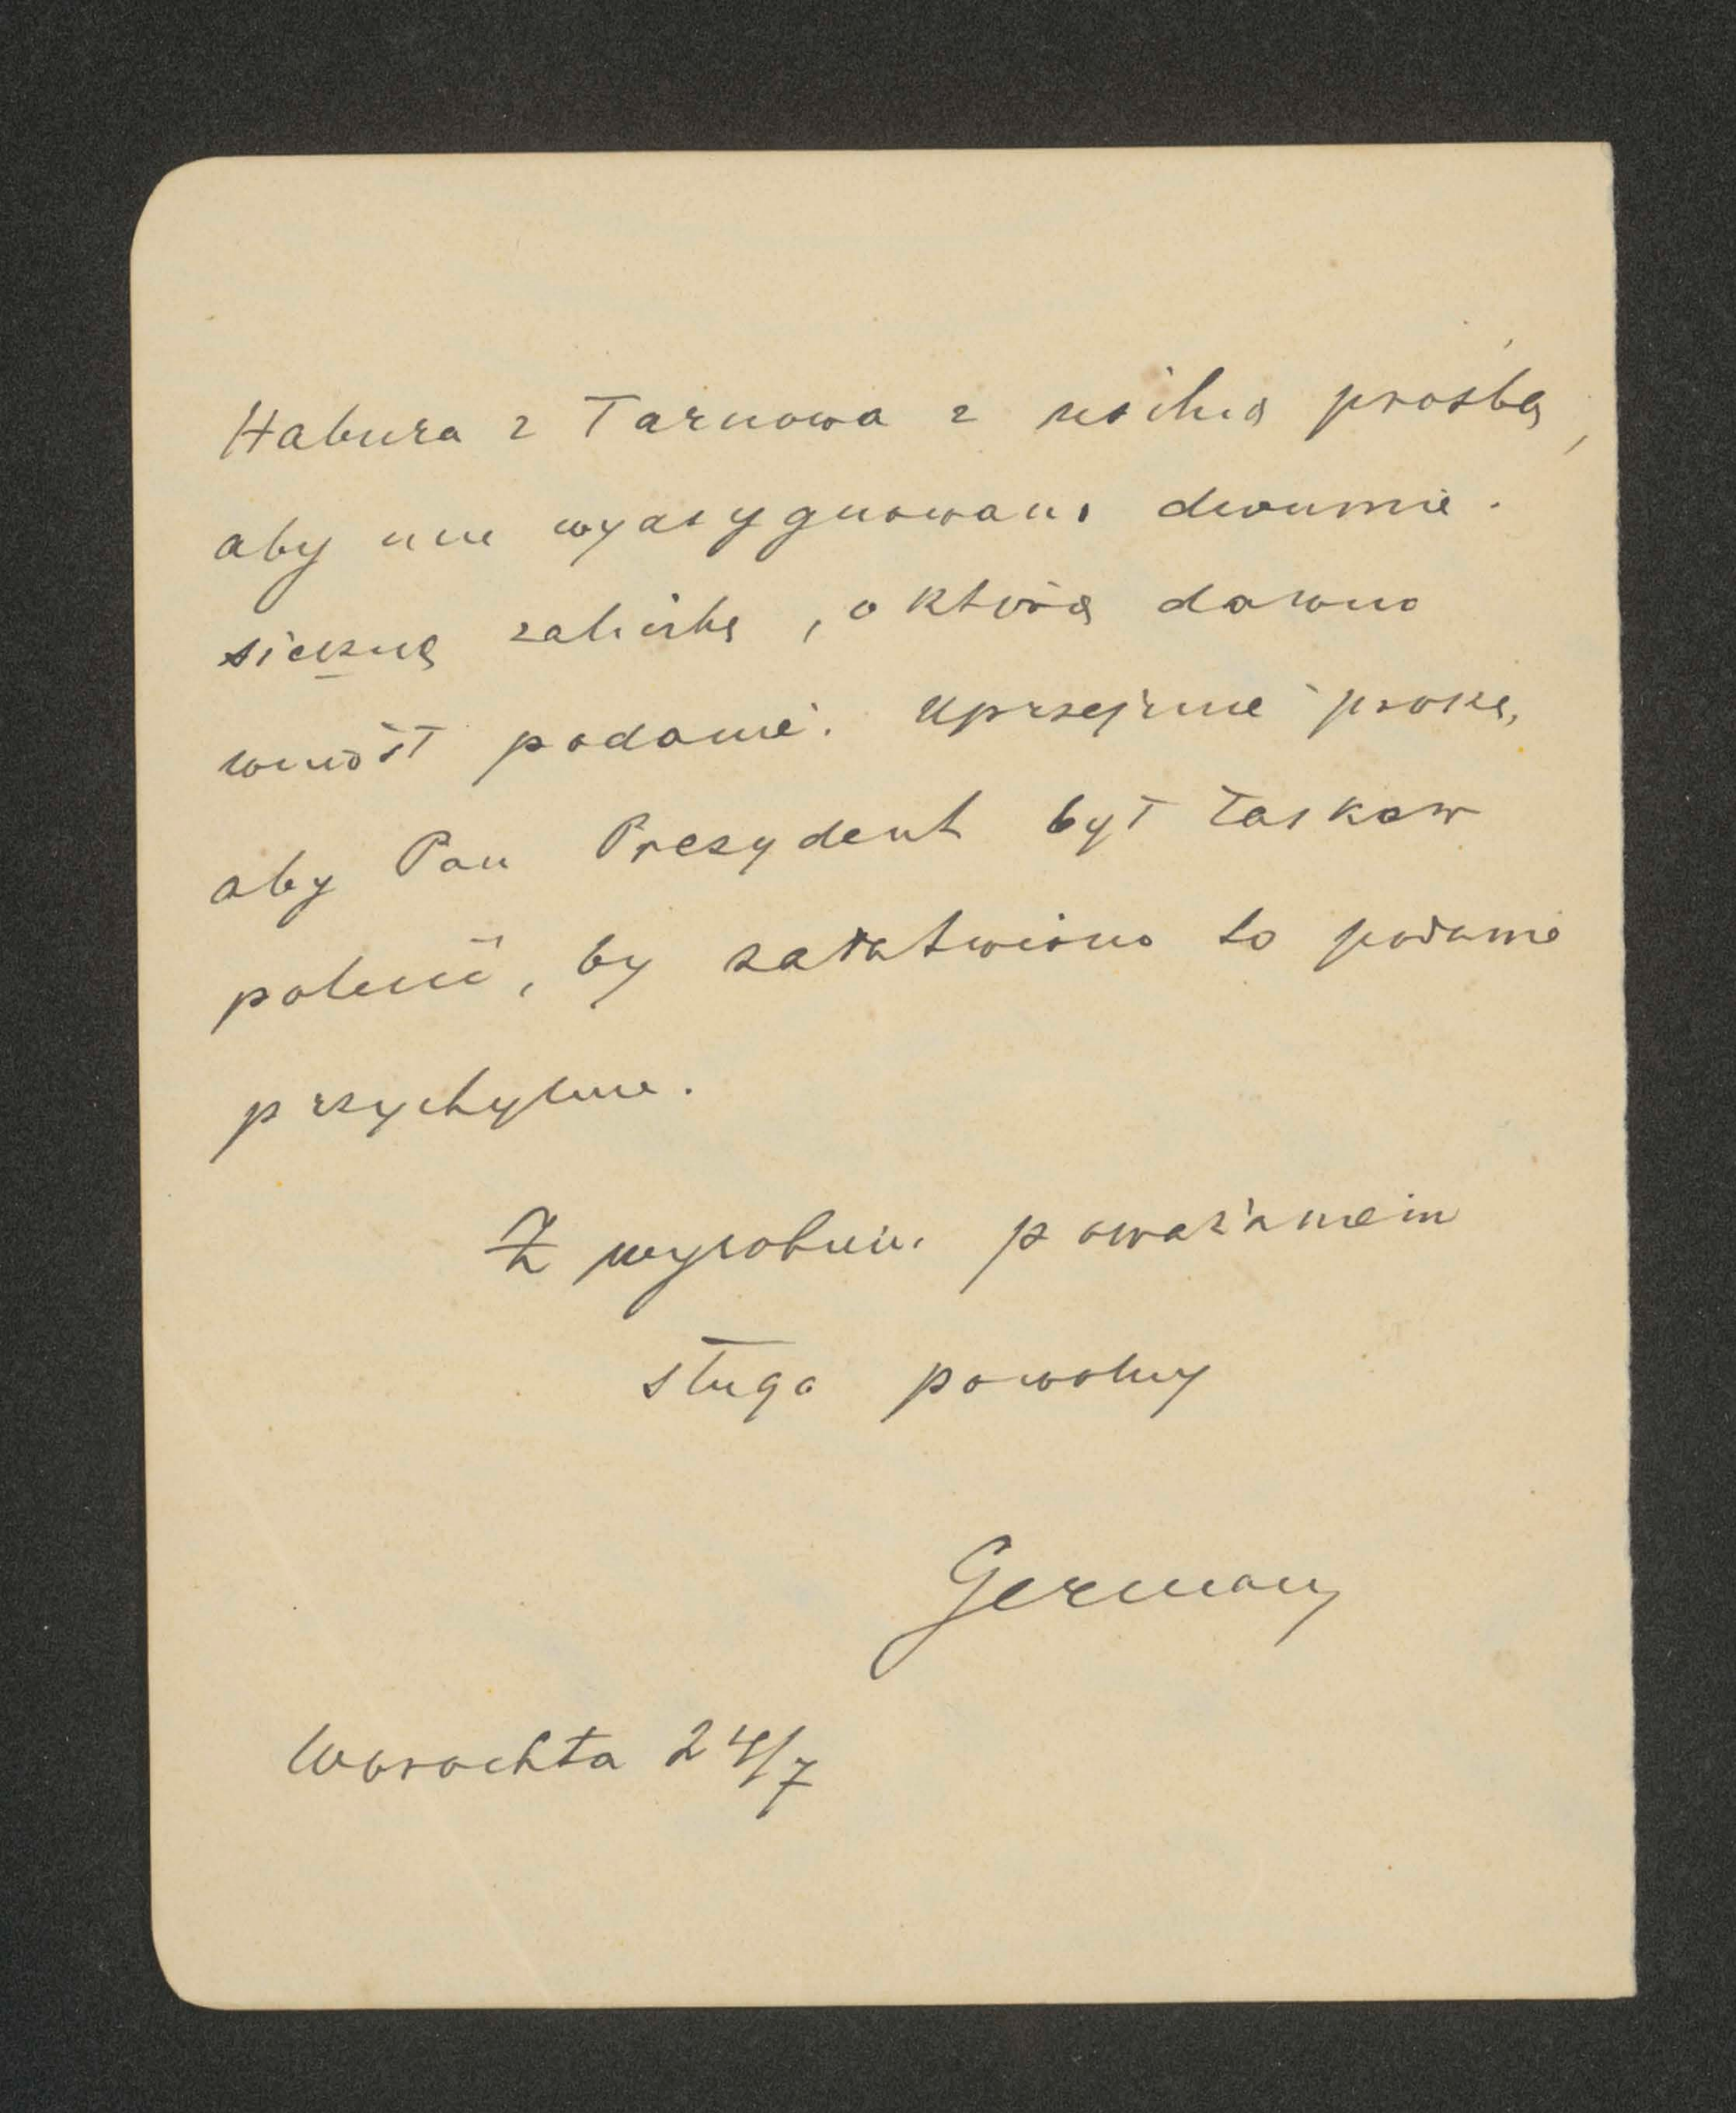 Habura z Tarnowa z usilną prośbą,
aby mu wyasygnowano dwumie-
sięczną zaliczkę, o którą dawno
wniósł podanie. Uprzejmie proszę,
aby Pan Prezydent był łaskaw
polecić, by załatwiono to podanie
przychylnie.
Z wysokiem poważaniem
sługa powolny
German
Worochta 24/7